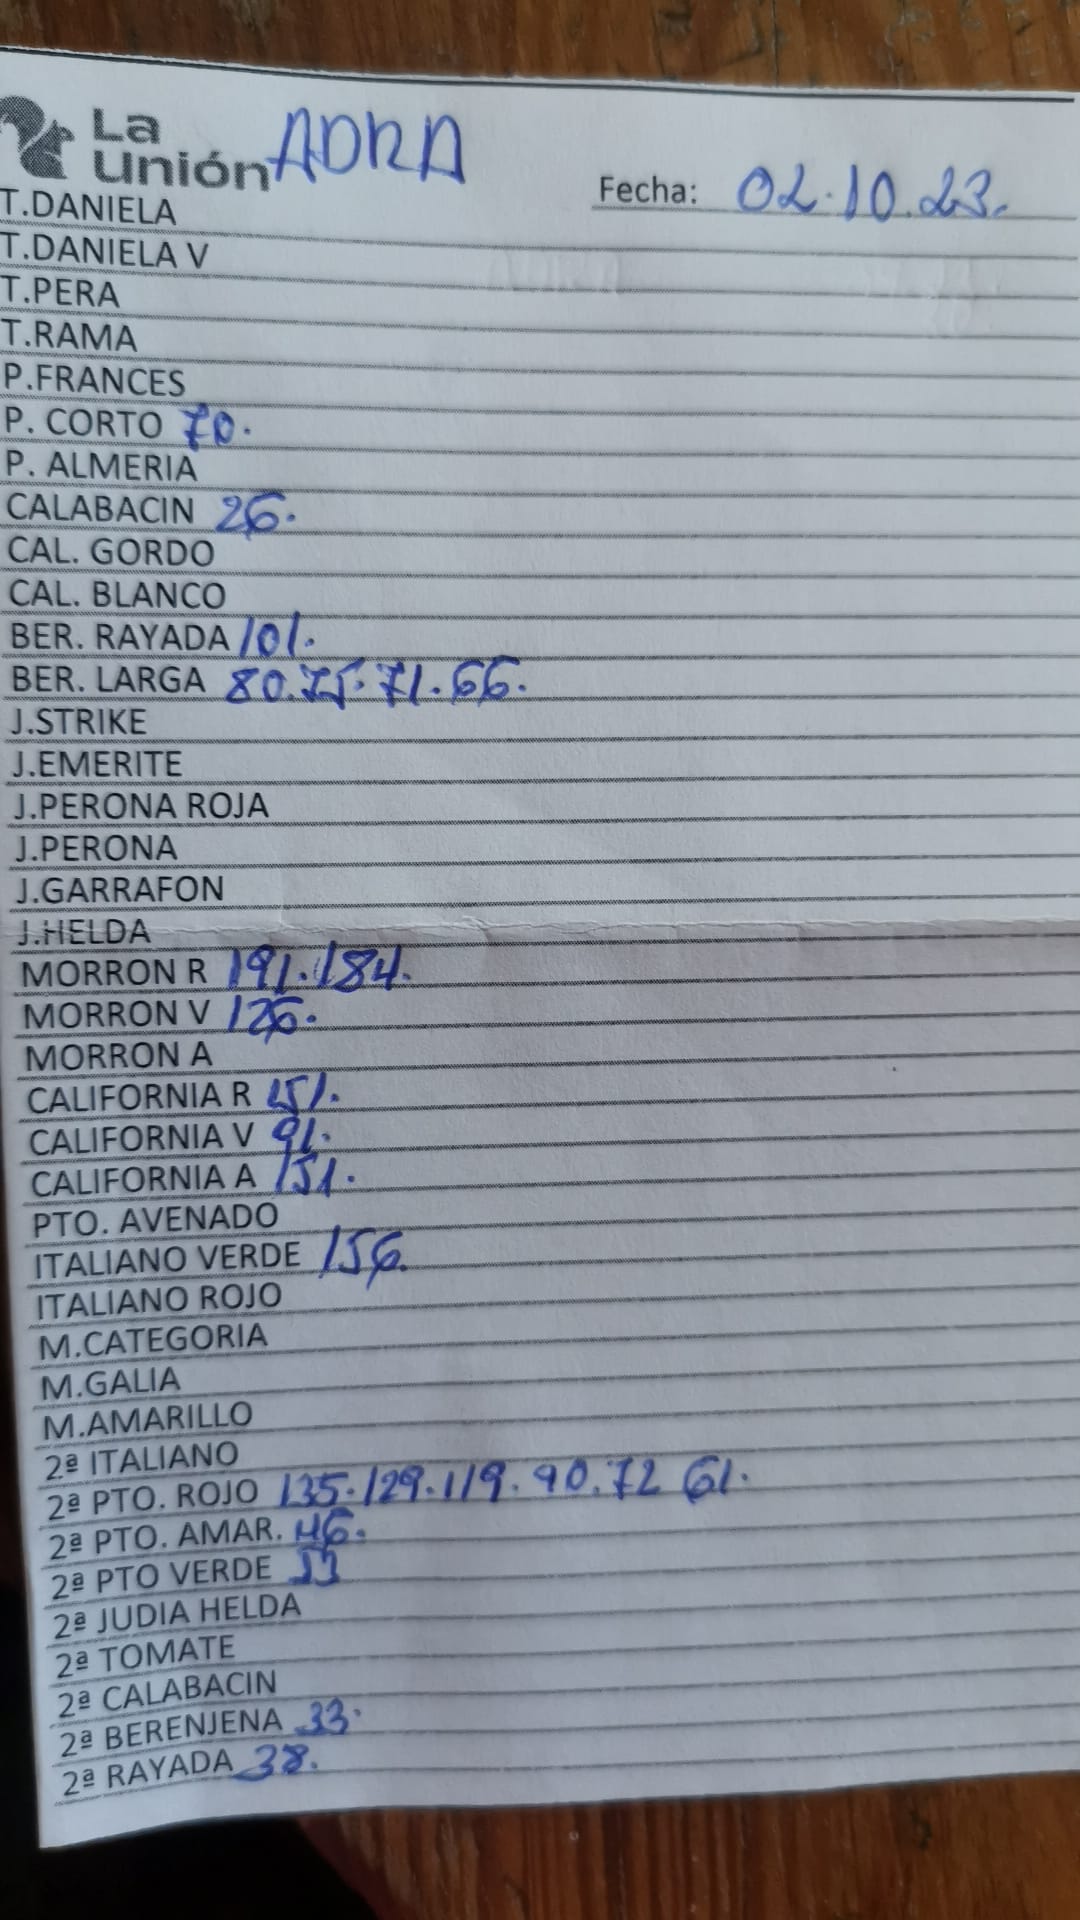 La Unión ADRA
Fecha: 02.10.23.
T.DANIELA
T.DANIELA V
T.PERA
T.RAMA
P.FRANCES
P. CORTO 70.
P. ALMERIA
CALABACIN 26.
CAL. GORDO
CAL. BLANCO
BER. RAYADA 101.
BER. LARGA 80.75.71.66.
J.STRIKE
J.EMERITE
J.PERONA ROJA
J.PERONA
J.GARRAFON
J.HELDA
MORRON R 191.184.
MORRON V 126.
MORRON A
CALIFORNIA R 151.
CALIFORNIA V 91.
CALIFORNIA A 151.
PTO. AVENADO
ITALIANO VERDE 156.
ITALIANO ROJO
M.CATEGORIA
M.GALIA
M.AMARILLO
2ª ITALIANO
2ª PTO. ROJO 135.129.119.90.72 61.
2ª PTO. AMAR.
2ª PTO VERDE
2ª JUDIA HELDA
2ª TOMATE
2ª CALABACIN
2ª BERENJENA 33.
2ª RAYADA 38.